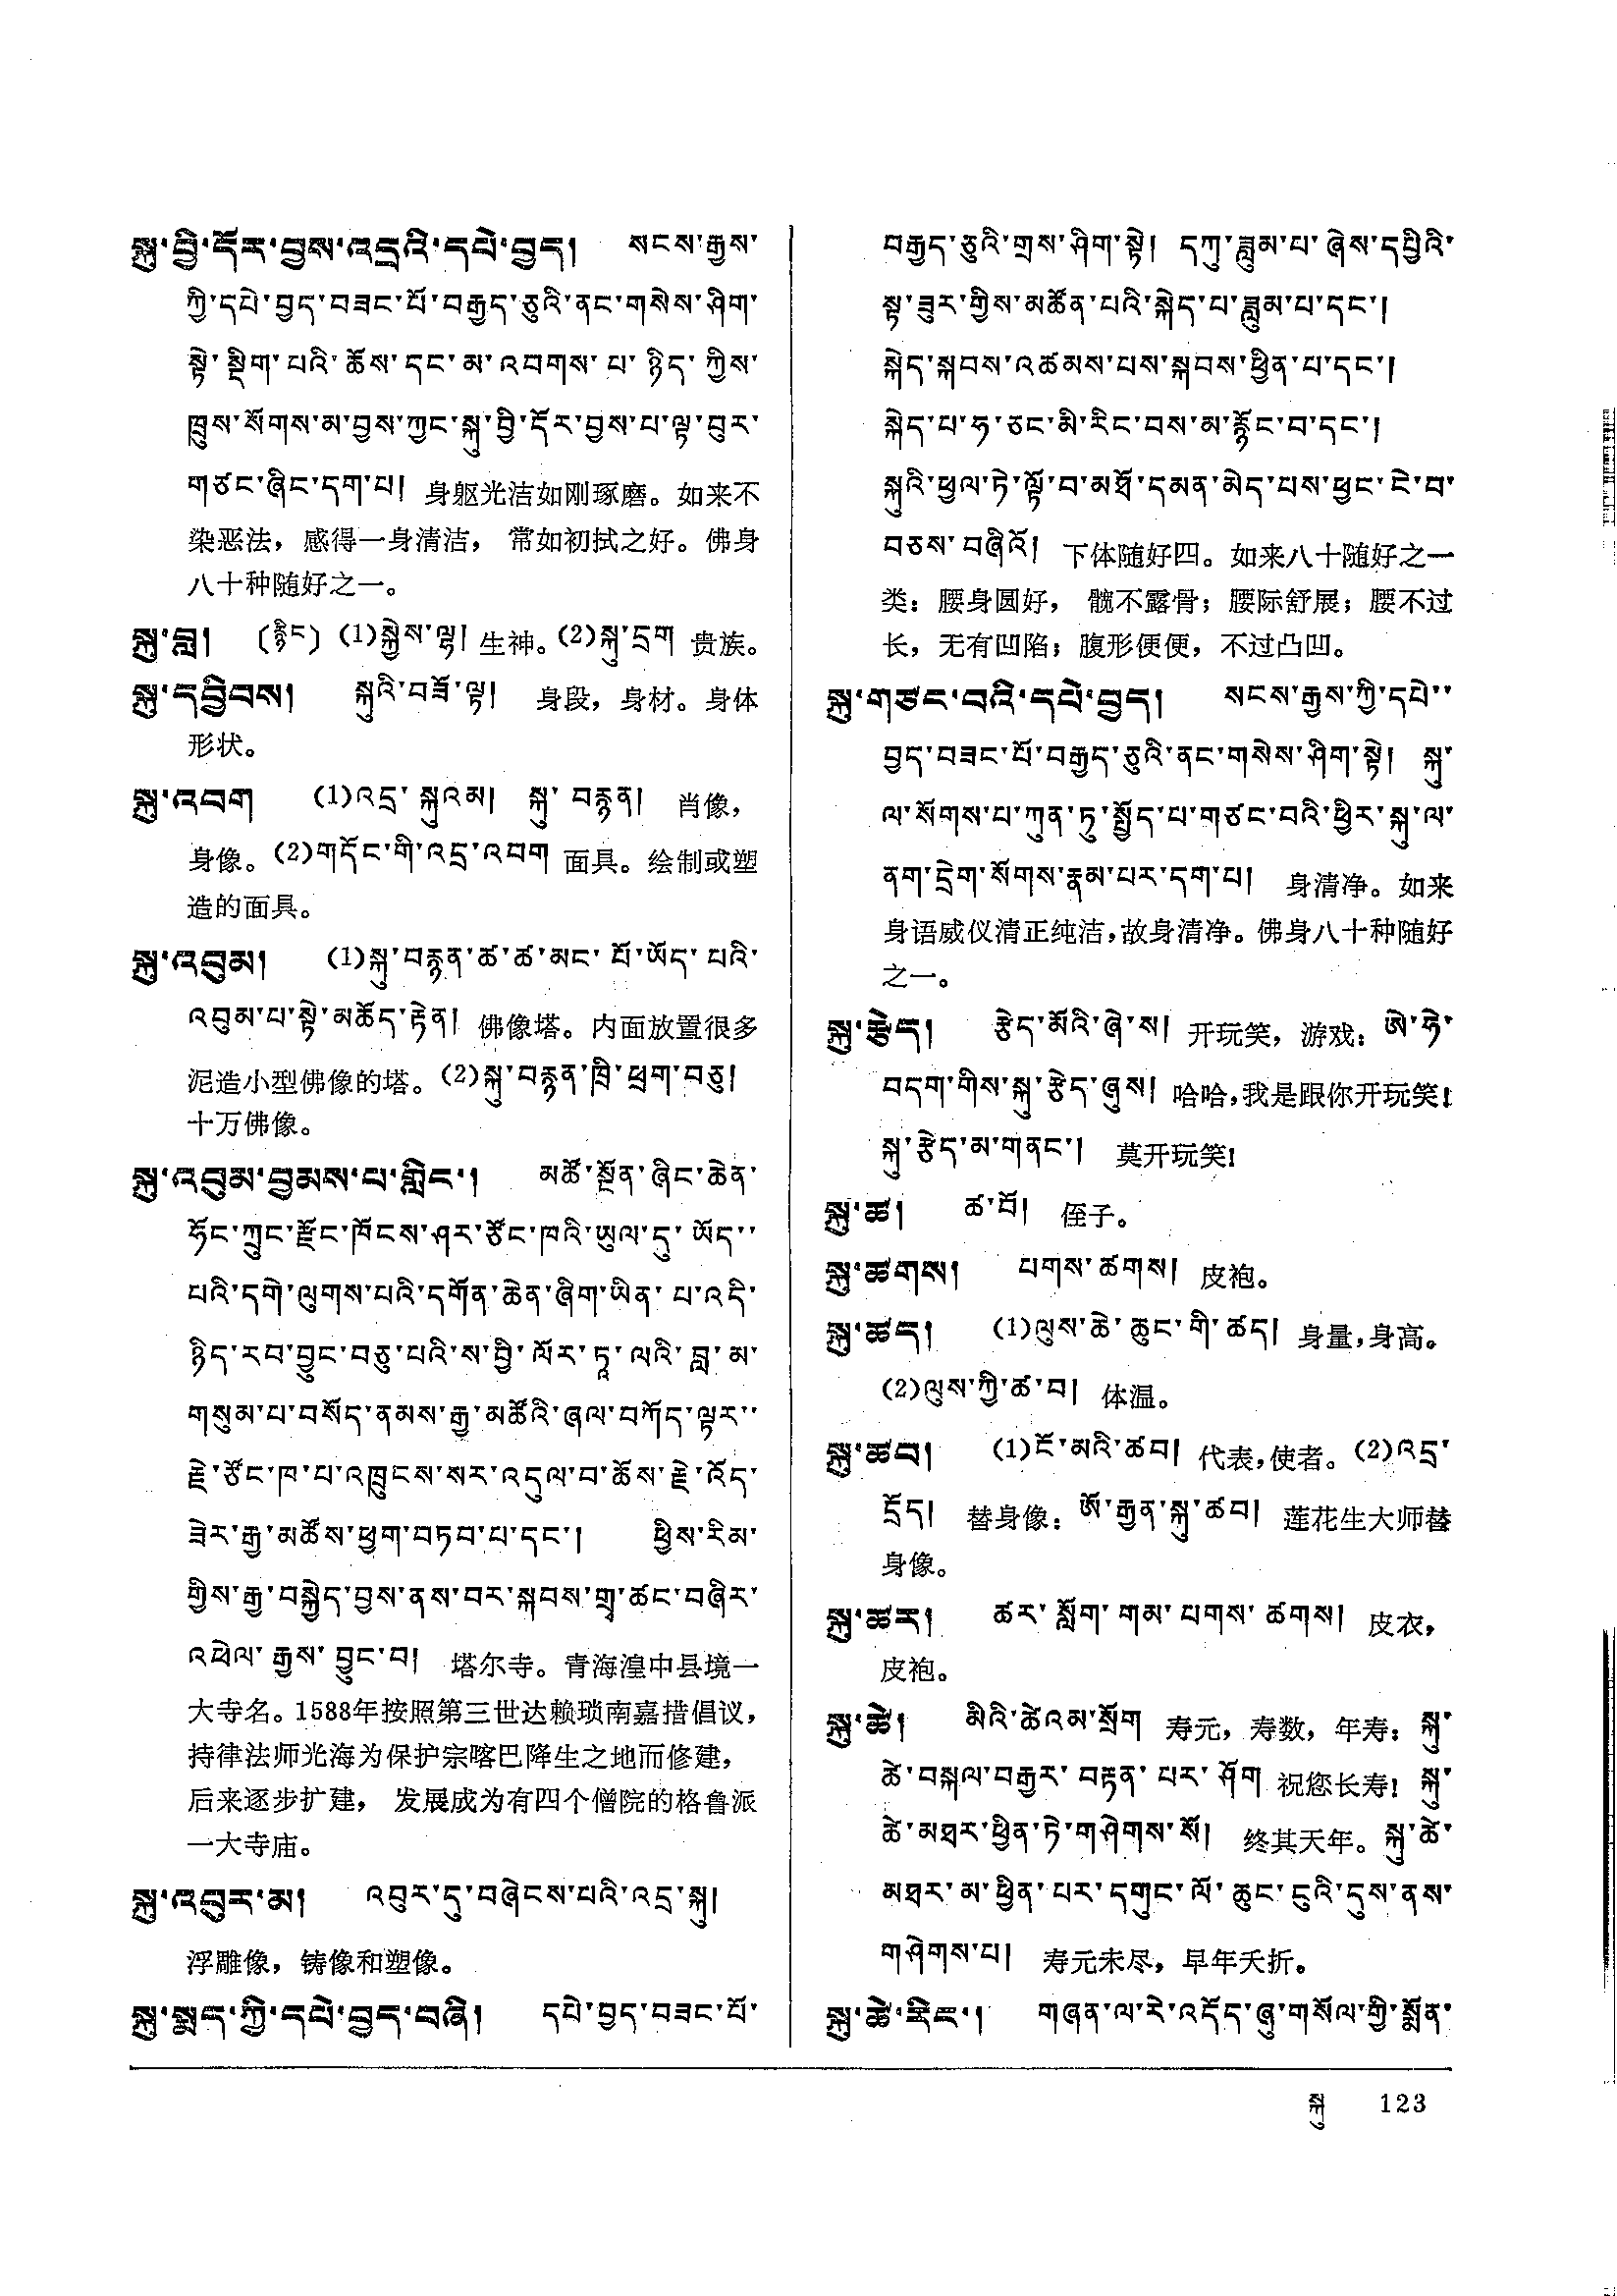 སྐུ་བྱི་དོར་བྱས་འདྲའི་དཔེ་བྱད། སངས་རྒྱས་
ཀྱི་དཔེ་བྱད་བཟང་པོ་བརྒྱད་ཅུའི་ནང་གསེས་ཤིག་
སྟེ་སྡིག་པའི་ཆོས་དང་མ་འབགས་པ་ཉིད་ཀྱིས་
ཁྲུས་སོགས་མ་བྱས་ཀྱང་སྐུ་བྱི་དོར་བྱས་པ་ལྟ་བུར་
གཙང་ཞིང་དག་པ། 身躯光洁如刚琢磨。如来不
染恶法，感得一身清洁， 常如初拭之好。佛身
八十种随好之一。
སྐུ་བླ། 〔རྙིང〕(1)སྐྱེས་ལྷ། 生神。(2)སྐུ་དྲག 贵族。
སྐུ་དབྱིབས། སྐུའི་བཟོ་ལྟ། 身段，身材。身体
形状。
སྐུ་འབག (1)འདྲ་སྐུའམ། སྐུ་བརྙན། 肖像，
身像。(2)གདོང་གི་འདྲ་འབག 面具。绘制或塑
造的面具。
སྐུ་འབུམ། (1)སྐུ་བརྙན་ཚ་ཚ་མང་པོ་ཡོད་པའི་
འབུམ་པ་སྟེ་མཆོད་རྟེན། 佛像塔。内面放置很多
泥造小型佛像的塔。(2)སྐུ་བརྙན་ཁྲི་ཕྲག་བཅུ།
十万佛像。
སྐུ་འབུམ་བྱམས་པ་གླིང་། མཚོ་སྔོན་ཞིང་ཆེན་
ཧོང་ཀྲུང་རྫོང་ཁོངས་ཤར་ཙོང་ཁའི་ཡུལ་དུ་ཡོད་་
པའི་དགེ་ལུགས་པའི་དགོན་ཆེན་ཞིག་ཡིན་པ་འདི་
ཉིད་རབ་བྱུང་བཅུ་པའི་ས་བྱི་ལོར་ཏཱ་ལའི་བླ་མ་
གསུམ་པ་བསོད་ནམས་རྒྱ་མཚོའི་ཞལ་བཀོད་ལྟར་་
རྗེ་ཙོང་ཁ་པ་འཁྲུངས་སར་འདུལ་བ་ཆོས་རྗེ་འོད་
ཟེར་རྒྱ་མཚོས་ཕྱག་བཏབ་པ་དང་། ཕྱིས་རིམ་
གྱིས་རྒྱ་བསྐྱེད་བྱས་ནས་བར་སྐབས་གྲྭ་ཚང་བཞིར་
འཕེལ་རྒྱས་བྱུང་བ། 塔尔寺。青海湟中县境一
大寺名。1588年按照第三世达赖琐南嘉措倡议，
持律法师光海为保护宗喀巴降生之地而修建，
后来逐步扩建， 发展成为有四个僧院的格鲁派
一大寺庙。
སྐུ་འབུར་མ། འབུར་དུ་བཞེངས་པའི་འདྲ་སྐུ།
浮雕像，铸像和塑像。
སྐུ་སྨད་ཀྱི་དཔེ་བྱད་བཞི། དཔེ་བྱད་བཟང་པོ་
བརྒྱད་ཅུའི་གྲས་ཤིག་སྟེ། དཀུ་ཟླུམ་པ་ཞེས་དཔྱིའི་
སྟ་ཟུར་གྱིས་མཚོན་པའི་སྐེད་པ་ཟླུམ་པ་དང་།
སྐེད་སྐབས་འཚམས་པས་སྐབས་ཕྱིན་པ་དང་།
སྐེད་པ་ཧ་ཅང་མི་རིང་བས་མ་རྙོང་བ་དང་།
སྐུའི་ཕྱལ་ཏེ་ལྟོ་བ་མཐོ་དམན་མེད་པས་ཕྱང་ངེ་བ་
བཅས་བཞིའོ། 下体随好四。如来八十随好之一
类：腰身圆好， 髋不露骨；腰际舒展；腰不过
长，无有凹陷；腹形便便，不过凸凹。
སྐུ་གཙང་བའི་དཔེ་བྱད། སངས་རྒྱས་ཀྱི་དཔེ་་
བྱད་བཟང་པོ་བརྒྱད་ཅུའི་ནང་གསེས་ཤིག་སྟེ། སྐུ་
ལ་སོགས་པ་ཀུན་ཏུ་སྤྱོད་པ་གཙང་བའི་ཕྱིར་སྐུ་ལ་
ནག་དྲེག་སོགས་རྣམ་པར་དག་པ། 身清净。如来
身语威仪清正纯洁，故身清净。佛身八十种随好
之一。
སྐུ་རྩེད། རྩེད་མོའི་ཞེ་ས། 开玩笑，游戏：ཨེ་ཧེ་
བདག་གིས་སྐུ་རྩེད་ཞུས། 哈哈，我是跟你开玩笑！
སྐུ་རྩེད་མ་གནང་། 莫开玩笑！
སྐུ་ཚ། ཚ་བོ། 侄子。
སྐུ་ཚགས། པགས་ཚགས། 皮袍。
སྐུ་ཚད། (1)ལུས་ཆེ་ཆུང་གི་ཚད། 身量，身高。
(2)ལུས་ཀྱི་ཚ་བ། 体温。
སྐུ་ཚབ། (1)ངོ་མའི་ཚབ། 代表，使者。(2)འདྲ་
དྲོད། 替身像：ཨོ་རྒྱན་སྐུ་ཚབ། 莲花生大师替
身像。
སྐུ་ཚར། ཚར་སློག་གམ་པགས་ཚགས། 皮衣，
皮袍。
སྐུ་ཚེ། མིའི་ཚེའམ་སྲོག 寿元，寿数，年寿：སྐུ་
ཚེ་བསྐལ་བརྒྱར་བརྟན་པར་ཤོག 祝您长寿！སྐུ་
ཚེ་མཐར་ཕྱིན་ཏེ་གཤེགས་སོ། 终其天年。སྐུ་ཚེ་
མཐར་མ་ཕྱིན་པར་དགུང་ལོ་ཆུང་ངུའི་དུས་ནས་
གཤེགས་པ། 寿元未尽，早年夭折。
སྐུ་ཚེ་རིང་། གཞན་ལ་རེ་འདོད་ཞུ་གསོལ་གྱི་སྨོན་
སྐུ 123